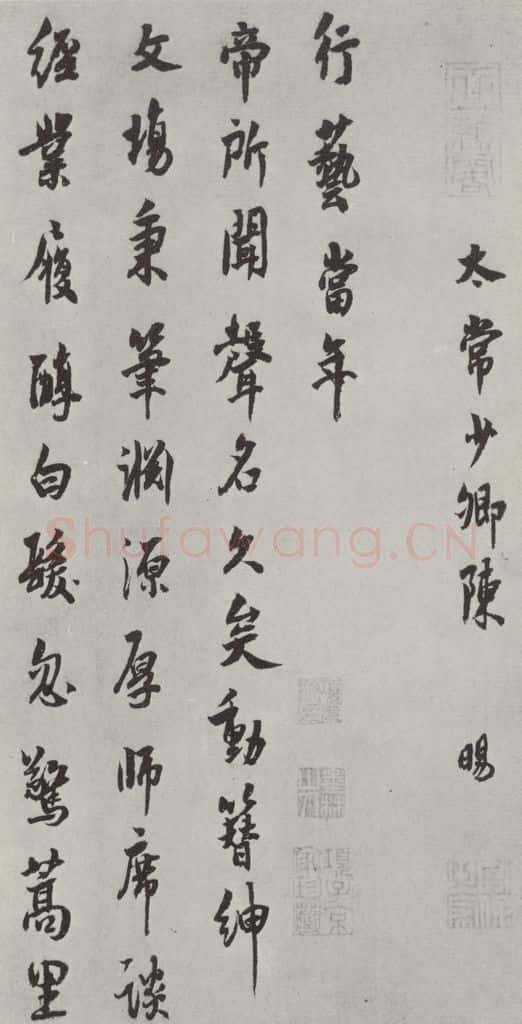 太常少卿陳 暘
行藝當年
帝所聞聲名久矣動簪紳
文場秉筆淵源厚師席談
經業履醇白髮忽驚蒿里
Shufawang.CN